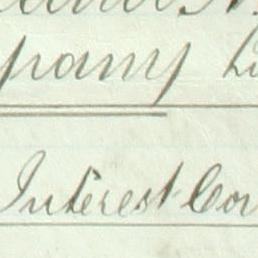 pany Li
Interest Cou